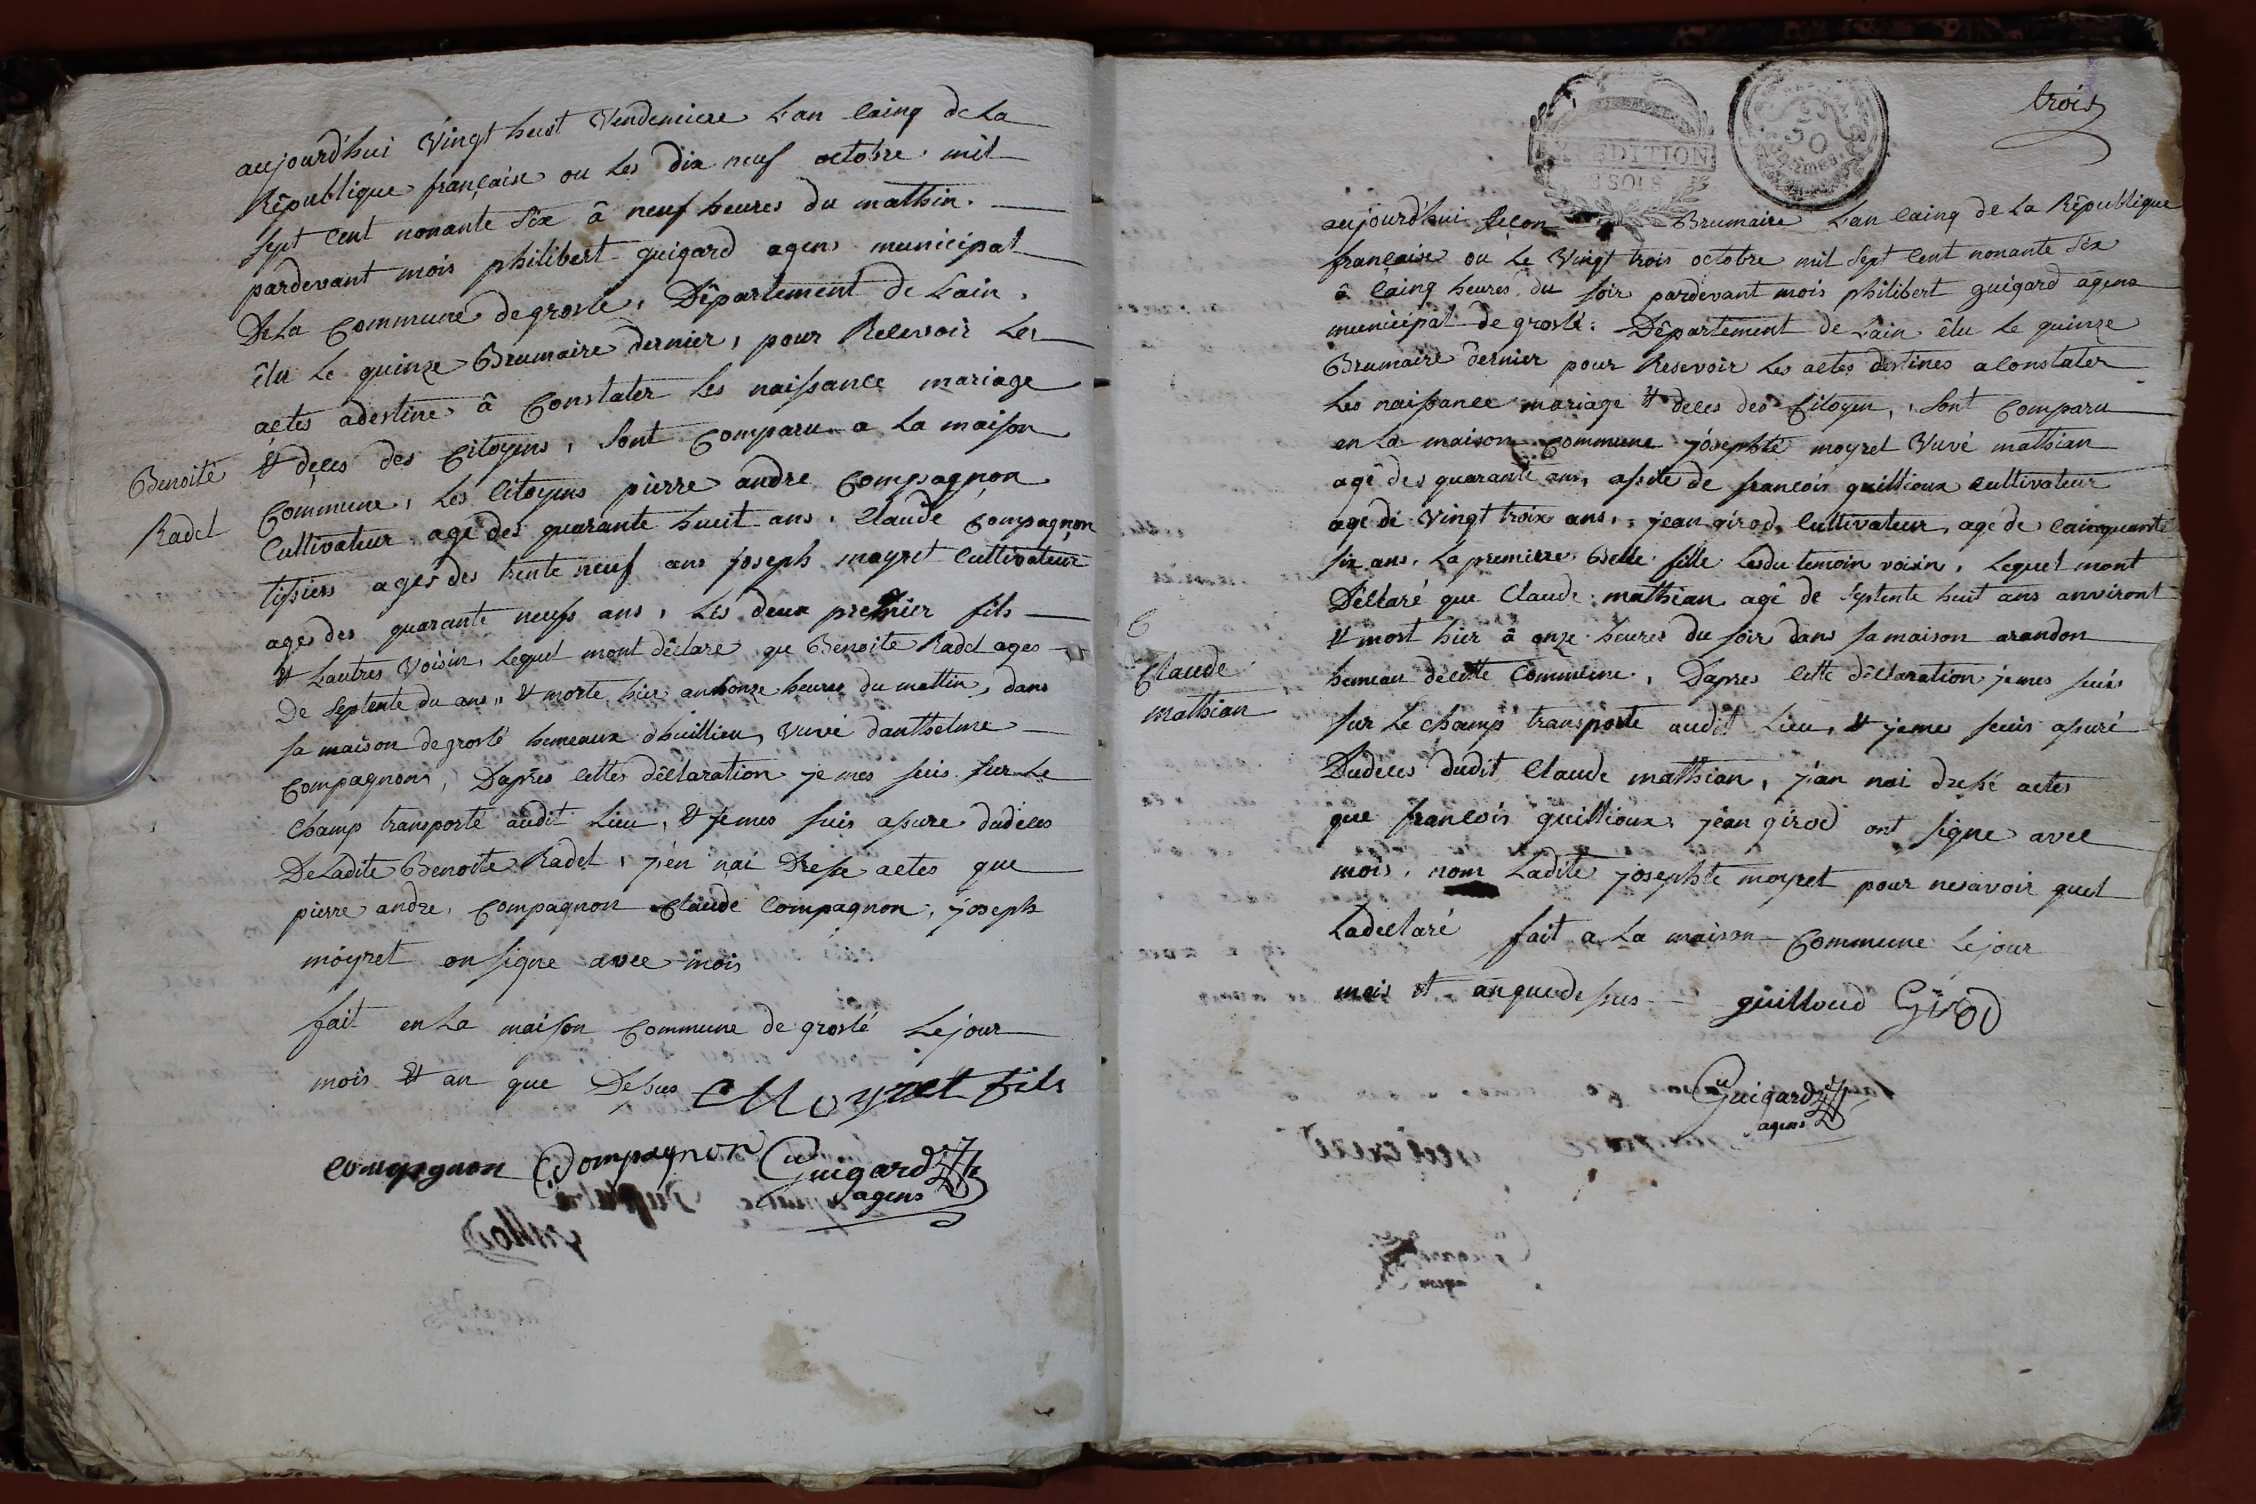 aujourd'hui Vingt huit Vendemiere L'an Cainq de La
République française ou Les dix neuf octobre mil
sept Cent nonante Six â neuf heures du mathin.
pardevant mois philibert guigard agens municipal
De La Commune de groslé, Département de Lain,
êlu Le quinze Brumaire dernier, pour Relevoir Les
actes adestine â Constater Les naissance mariage
et deces des Citoyens, Sont Comparu a La maison
Benoite
Radet
Commune, Les Citoyens pierre andre Compagnon
Cultivateur agé des quarante hueit ans, Claude Compagnon
tissiers agés des trente neuf ans joseph moyret Cultivateur
agés des quarante neufs ans, Les deux premier fils
et Lautres Voisin, Lequel mont déclare que Benoite Radet ages
De Septente du ans, et morte, hier an honze heures du mattin, dans
sa maison de groslé hemeaux dhuillieu, Vuvé danthelme
Compagnons, Daprês Cettes déclaration je mes suis sur Le
Champ transporté audit Lieu, et je mes suis asure dudéces
De Ladite Benoite Radet, j'en nai Dresse actes que
pierre andre, Compagnon Claude Compagnon, joseph
moyret on signe avec mois
fait en La maison Commune de groslé Le jour
mois et an que Desus Moyret fils
compagnon Compagnon Guigard
agens
trois
EXPEDITION
aujourd'hui seçon Brumaire L'an Cainq de La République
française ou Le Vingt trois octobre mil Sept Cent nonante Six
â Cainq heures du soir pardevant mois philibert guigard agens
municipal de groslé. Département de Lain êlu Le quinze
Brumaire dernier pour Resevoir Les actes destines a Constater
Les naissance mariage et deces des Citoyen, Sont Comparu
en La maison Commune jósephté moyret Vuvé mathian
agé des quarante ans, assite de francois guillioux Cultivateur
age de Vingt troix ans, jean girod, Cultivateur, age de Cainquante
six ans, La premierre Belle fille Lesdu temoin voisin, Lequel mont
Déclaré que Claude mathian agé de Septente heut ans anviront
Claude
mathian
et mort hier â onze heures du soir dans sa maison arandon
hemeau décette Commune, Dapres Cette déclaration je mes suis
sur Le Champ transporte audit Lieu, et je mes suis asuré
Dudeces dudit Claude mathian, j'an nai dressé actes
que francois guillioux, jéan girod ont signe avec
mois, nom Ladite josephte moyret pour nesavoir quel
Ladeclaré fait a La maison Commune Le jour
mois et anquedessus guilloud Girod
Guigard
agens